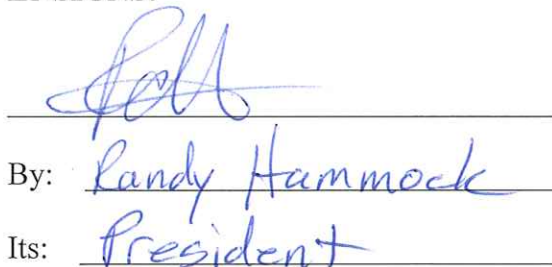 By: Randy Hammock
Its: President